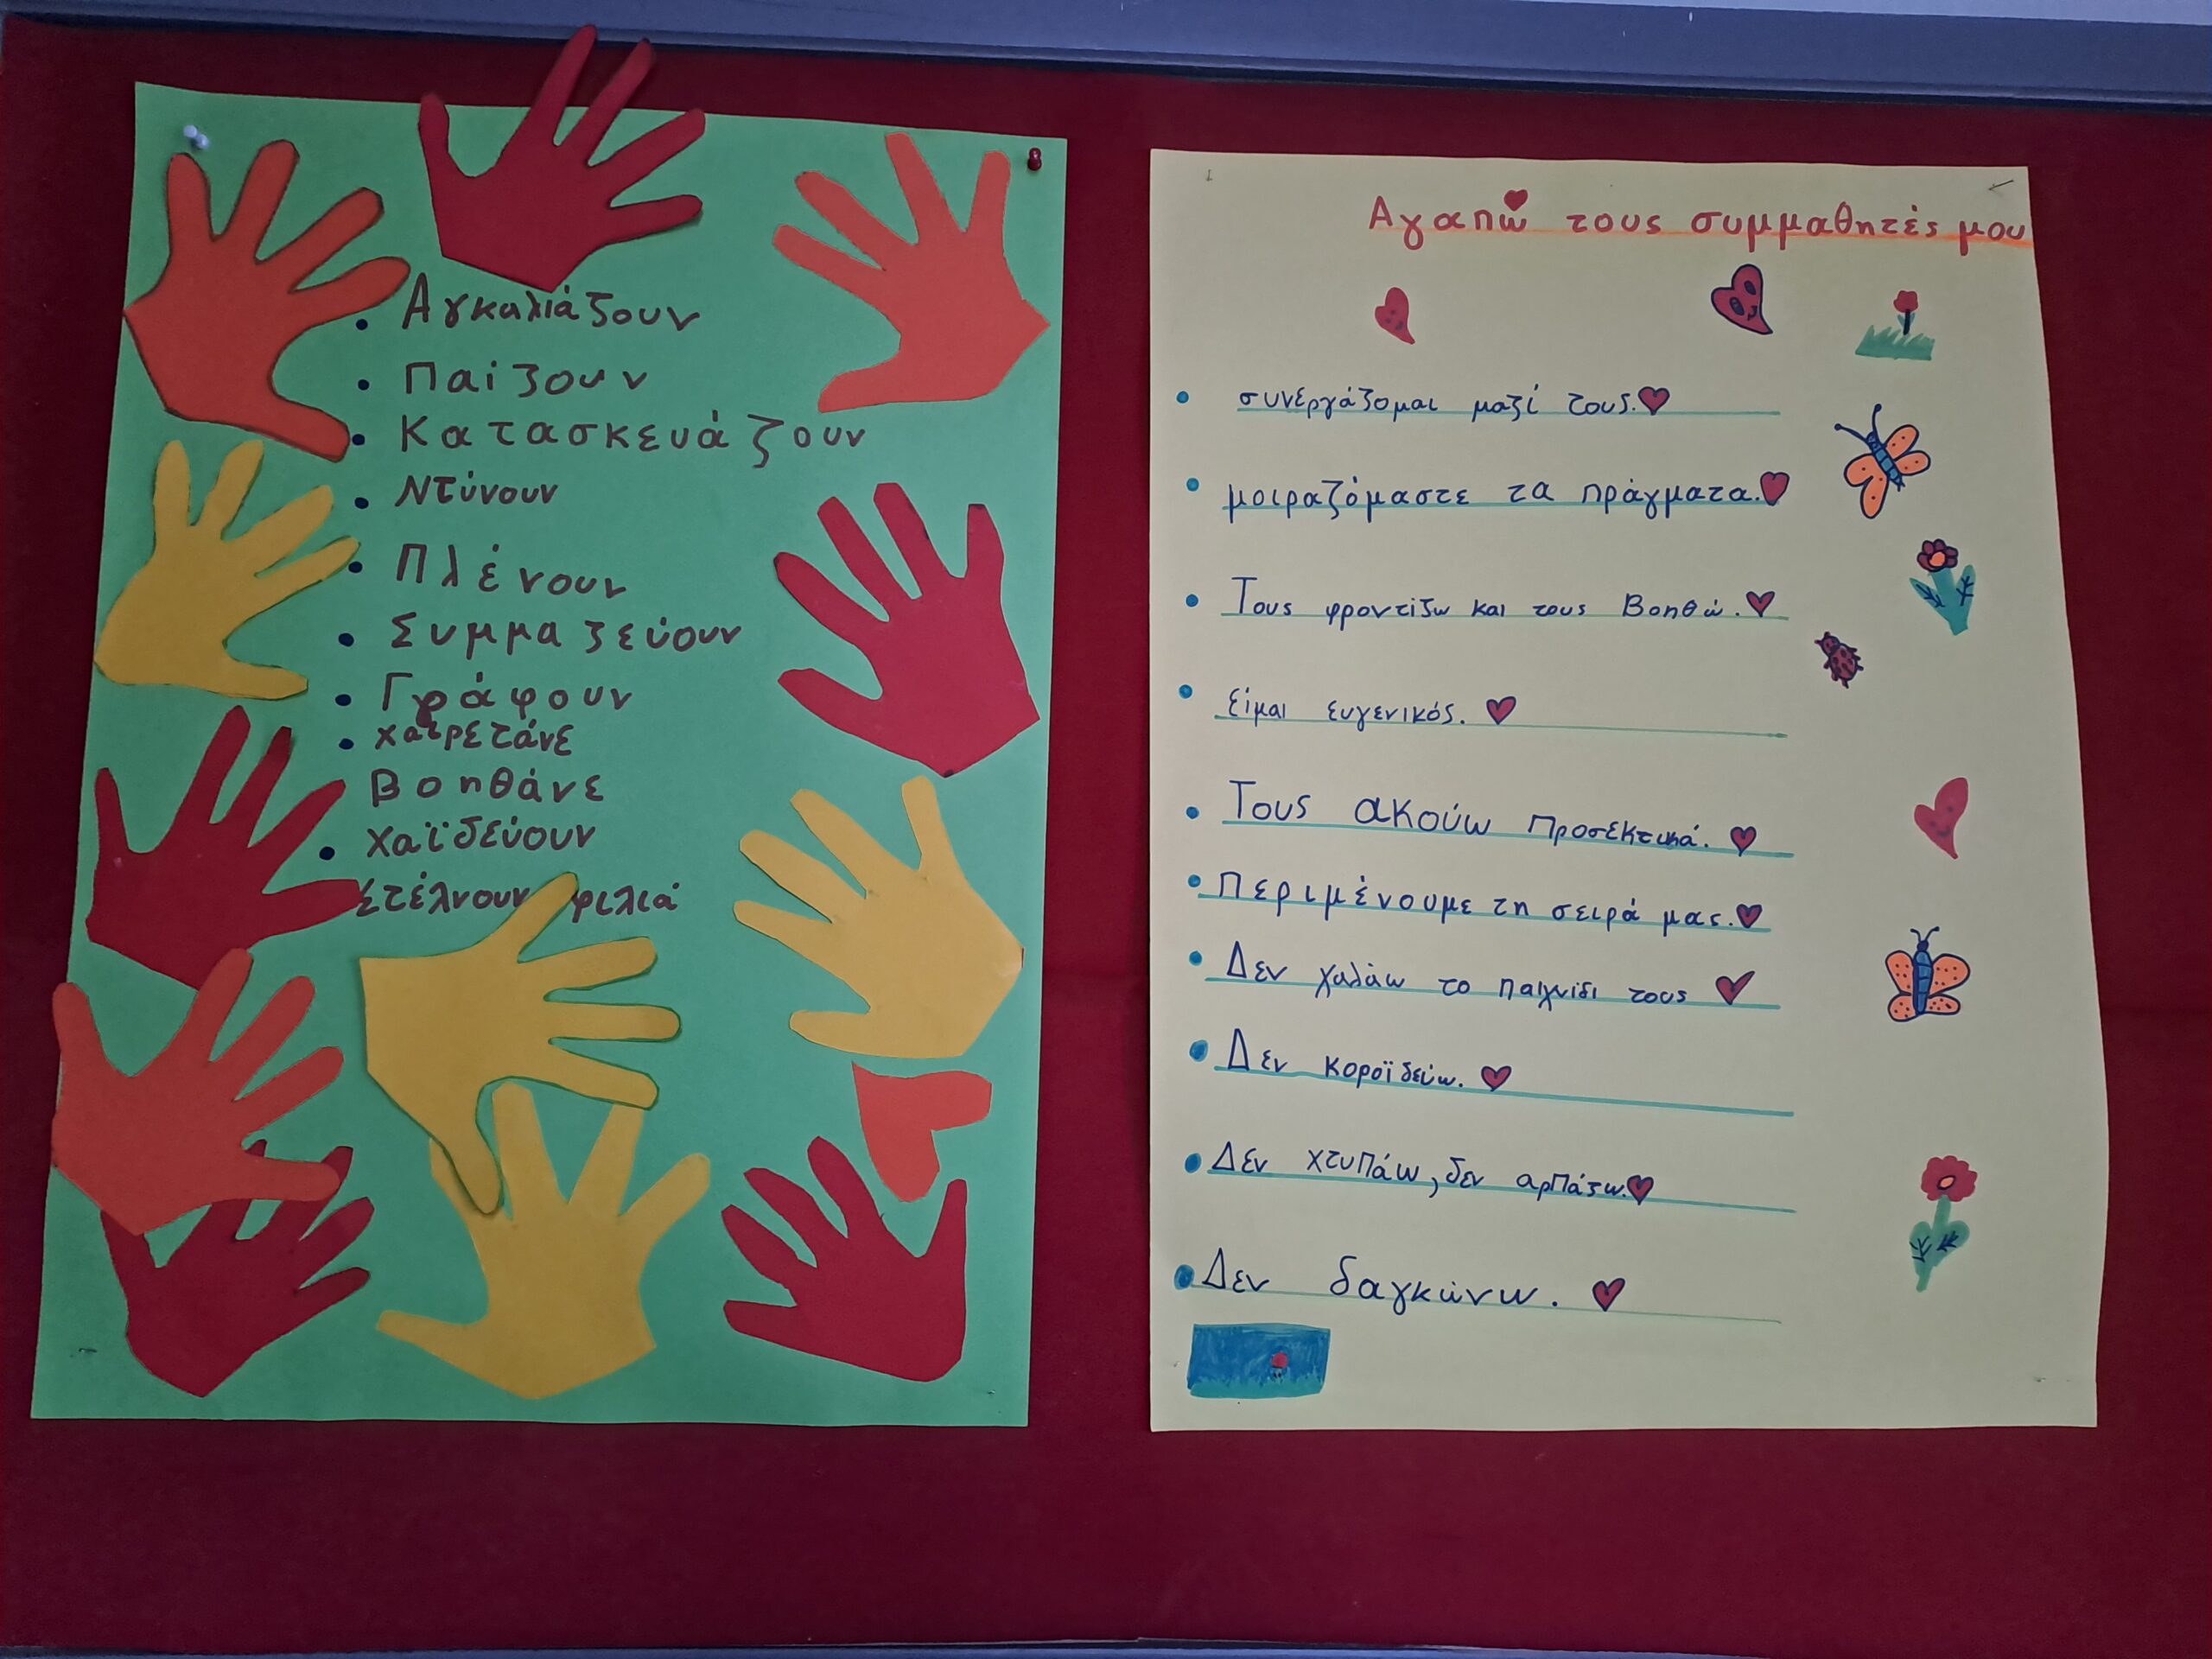 • Αγκαλιάζουν
• Παίζουν
• Κατασκευάζουν
• Ντύνουν
• Πλένουν
• Συμμαζεύουν
• Γράφουν
• χαιρετάνε
Βοηθάνε
• χαϊδεύουν
Στέλνουν φιλιά
Αγαπώ τους συμμαθητές μου
• συνεργάζομαι μαζί τους.
• μοιραζόμαστε τα πράγματα.
• Τους φροντίζω και τους Βοηθώ.
• είμαι ευγενικός.
• Τους ακούω Προσεκτικά.
• Περιμένουμε τη σειρά μας.
• Δεν χαλάω το παιχνίδι τους
• Δεν κοροϊδεύω.
• Δεν χτυπάω, δεν αρπάζω.
• Δεν δαγκώνω.